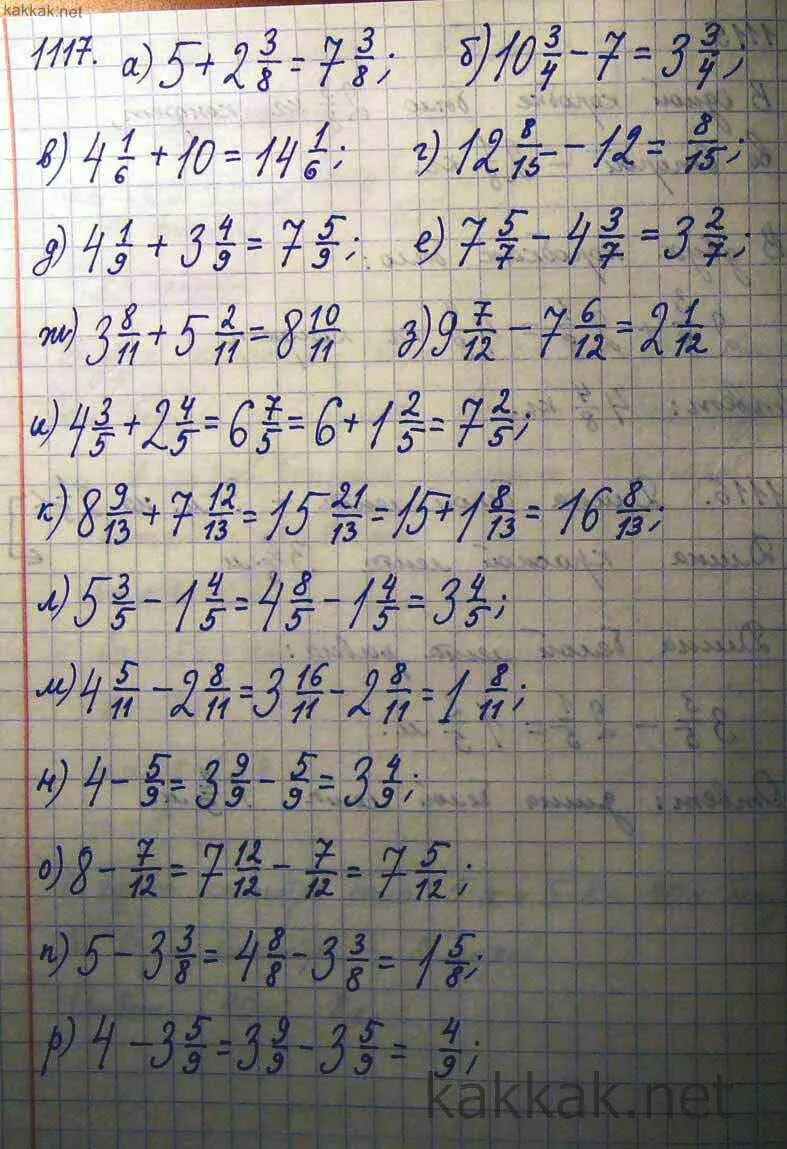 kakkak.net
1117. а) 5 + 2 3/8 = 7 3/8; б) 10 3/4 - 7 = 3 3/4;
в) 4 1/6 + 10 = 14 1/6; г) 12 8/15 - 12 = 8/15;
д) 4 1/9 + 3 4/9 = 7 5/9; е) 7 5/7 - 4 3/7 = 3 2/7;
ж) 3 8/11 + 5 2/11 = 8 10/11 з) 9 7/12 - 7 6/12 = 2 1/12
и) 4 3/5 + 2 4/5 = 6 7/5 = 6 + 1 2/5 = 7 2/5;
к) 8 9/13 + 7 12/13 = 15 21/13 = 15 + 1 8/13 = 16 8/13;
л) 5 3/5 - 1 4/5 = 4 8/5 - 1 4/5 = 3 4/5;
м) 4 5/11 - 2 8/11 = 3 16/11 - 2 8/11 = 1 8/11;
н) 4 - 5/9 = 3 9/9 - 5/9 = 3 4/9;
о) 8 - 7/12 = 7 12/12 - 7/12 = 7 5/12;
п) 5 - 3 3/8 = 4 8/8 - 3 3/8 = 1 5/8;
р) 4 - 3 5/9 = 3 9/9 - 3 5/9 = 4/9;
kakkak.net